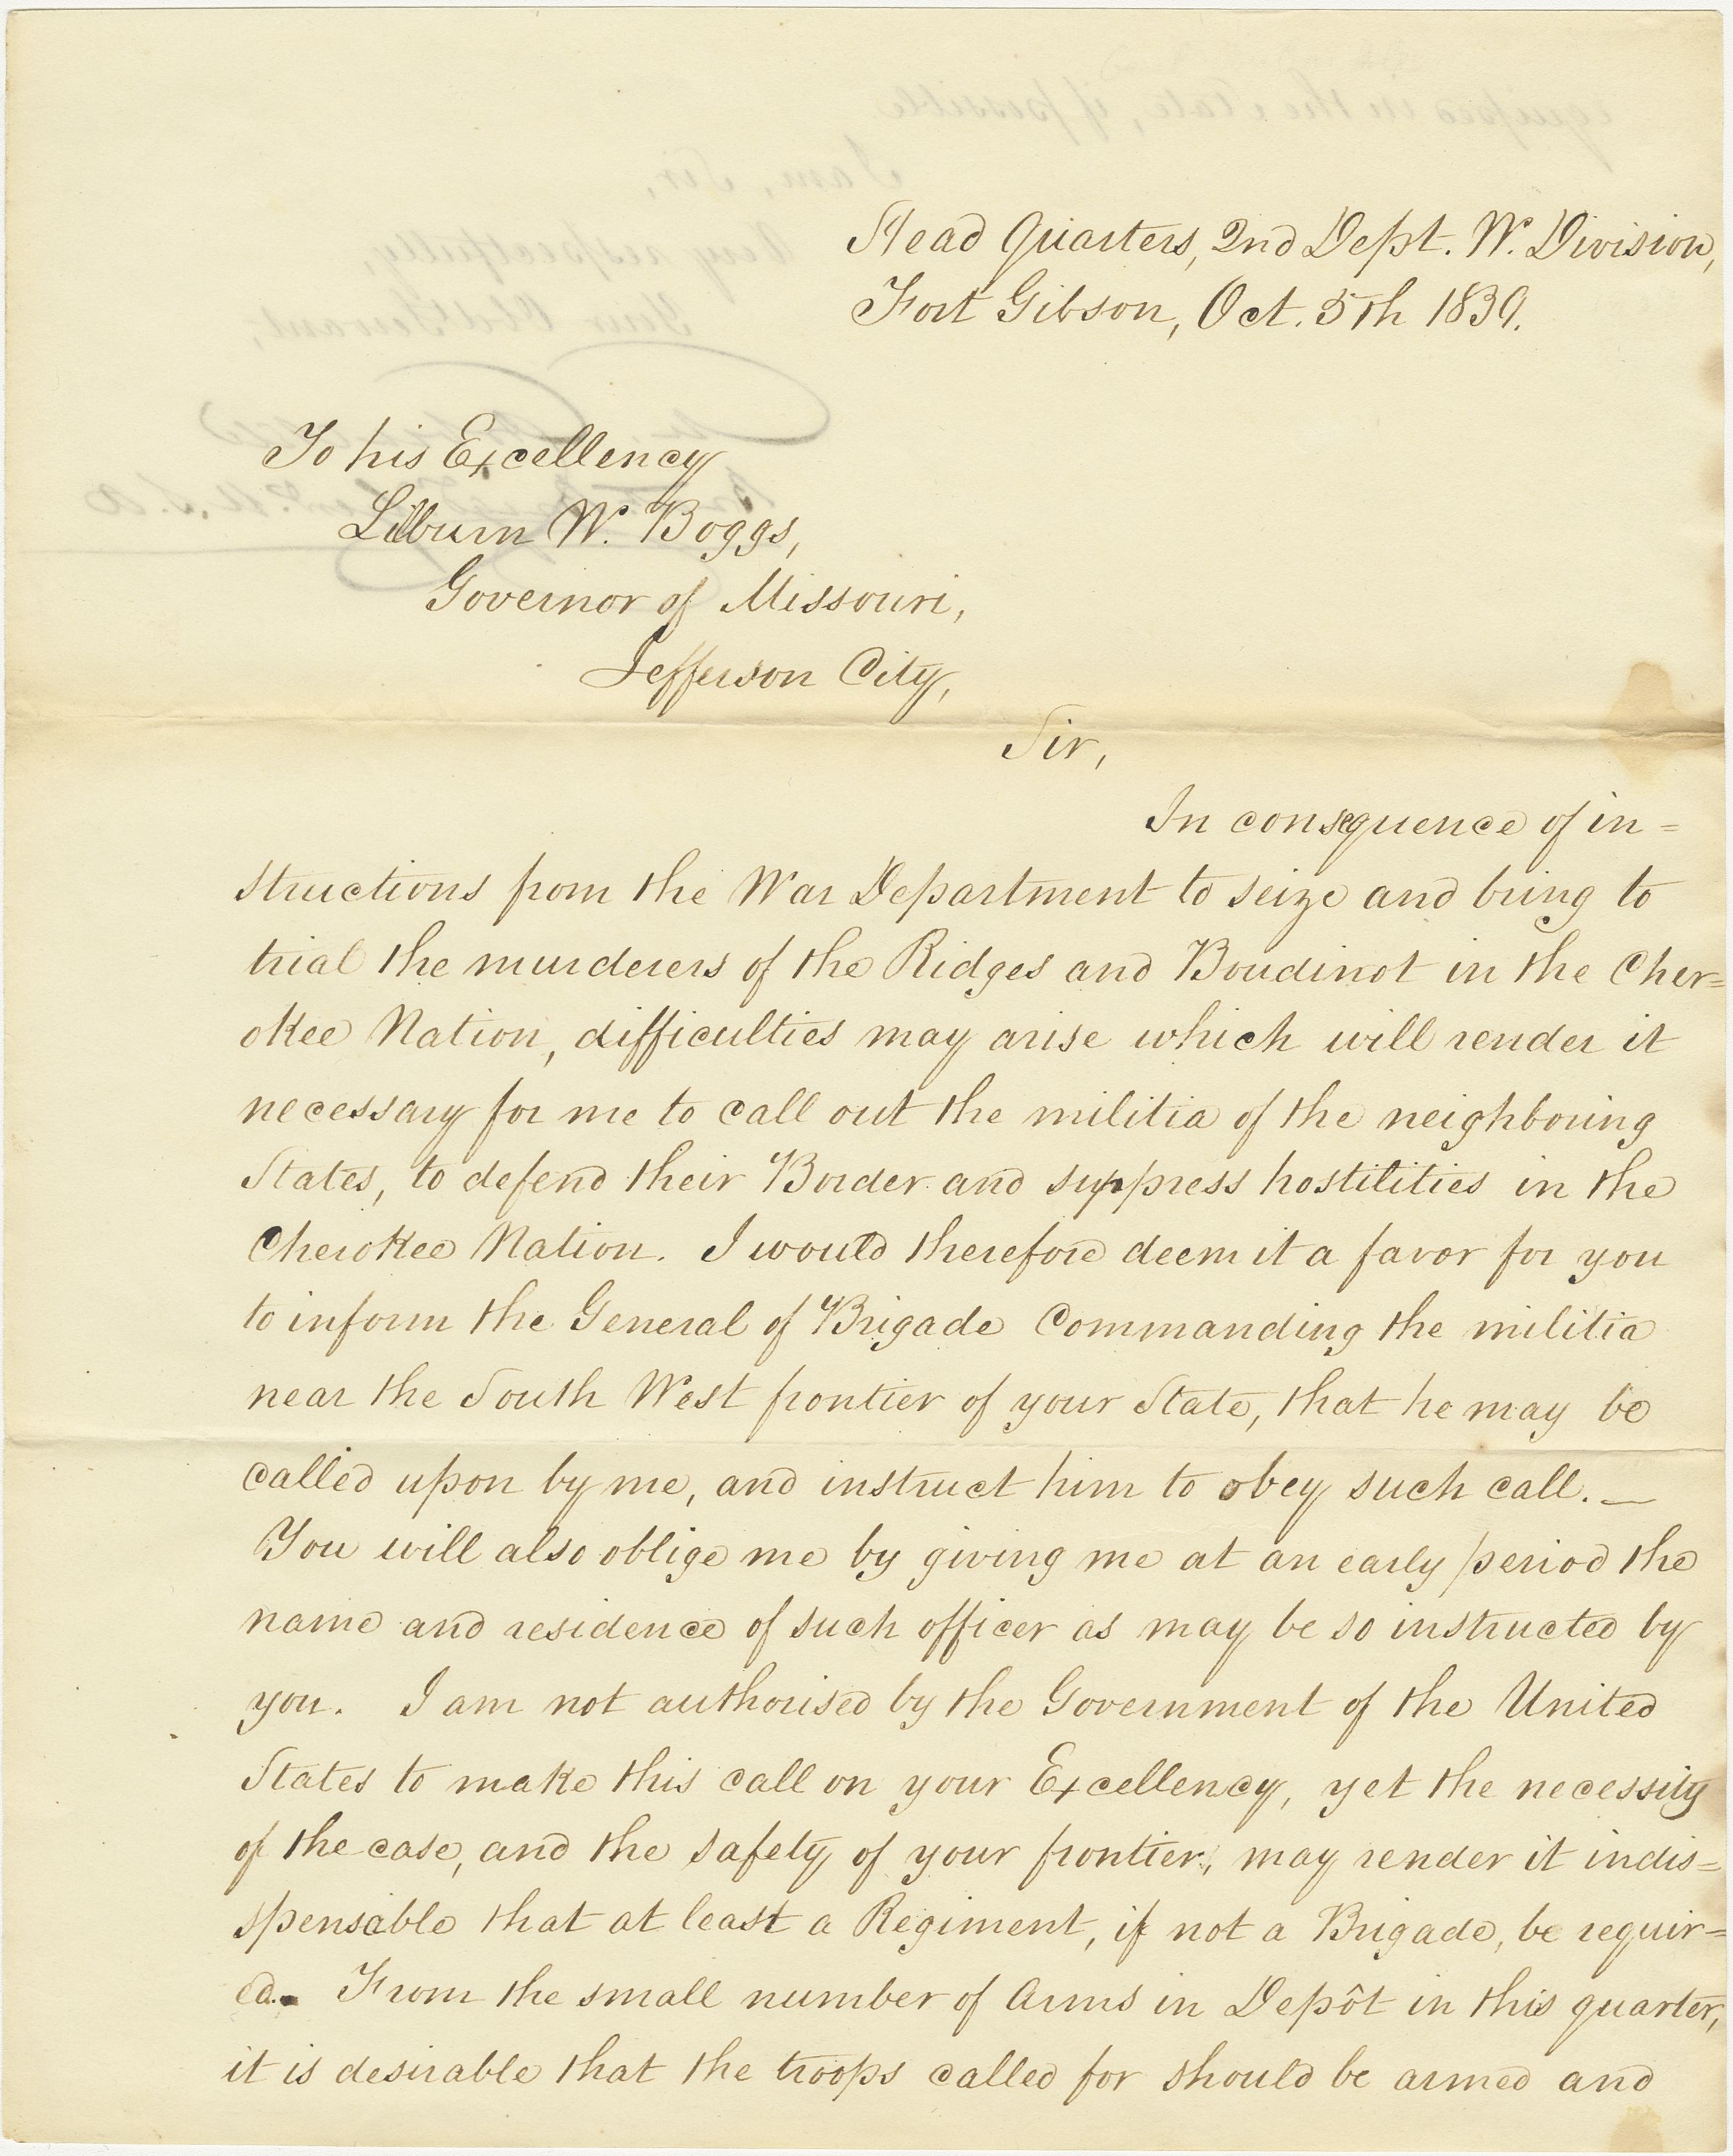 Head Quarters, 2nd Dept. W. Division,
Fort Gibson, Oct. 5th 1839.
To his Excellency
Lilburn W. Boggs,
Governor of Missouri,
Jefferson City,
Sir,
In consequence of in=
structions from the War Department to seize and bring to
trial the murderers of the Ridges and Boudinot in the Cher=
okee Nation, difficulties may arise which will render it
necessary for me to call out the militia of the neighboring
States, to defend their Border and suppress hostilities in the
Cherokee Nation. I would therefore deem it a favor for you
to inform the General of Brigade Commanding the militia
near the South West frontier of your State, that he may be
called upon by me, and instruct him to obey such call. —
You will also oblige me by giving me at an early period the
name and residence of such officer as may be so instructed by
you. I am not authorised by the Government of the United
States to make this call on your Excellency, yet the necessity
of the case, and the safety of your frontier, may render it indis=
spensable that at least a Regiment, if not a Brigade, be requir=
ed. From the small number of Arms in Depôt in this quarter,
it is desirable that the troops called for should be armed and
equiped in the State, if possible.
I am, Sir,
Very respectfully,
Your Obt Servant,